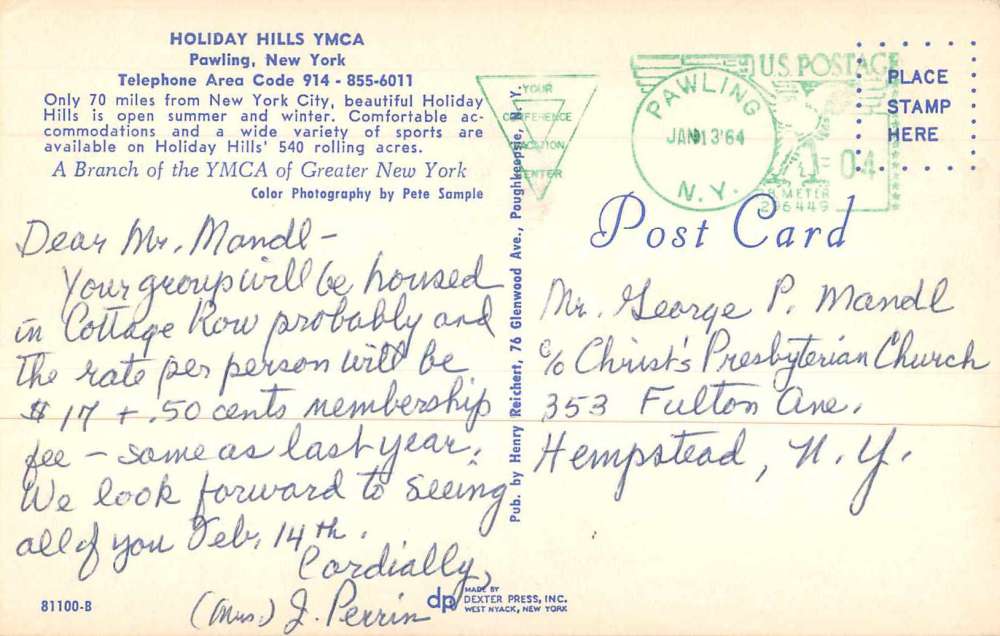 HOLIDAY HILLS YMCA
Pawling, New York
Telephone Area Code 914 - 855-6011
Only 70 miles from New York City, beautiful Holiday
Hills is open summer and winter. Comfortable ac-
commodations and a wide variety of sports are
available on Holiday Hills' 540 rolling acres.
A Branch of the YMCA of Greater New York
Color Photography by Pete Sample
Dear Mr. Mandl -
Your group will be housed
in Cottage Row probably and
the rate per person will be
$17 + .50 cents membership
fee - same as last year.
We look forward to seeing
all of you Feb. 14th.
Cordially,
(Mrs.) J. Perrin
81100-B
YOUR
CONFERENCE
VACATION
CENTER
PAWLING
JAN 13 '64
N.Y.
U.S. POSTAGE
04
METER
296449
PLACE
STAMP
HERE
Post Card
Mr. George P. Mandl
c/o Christ's Presbyterian Church
353 Fulton Ave.
Hempstead, N.Y.
Pub. by Henry Reichert, 76 Glenwood Ave., Poughkeepsie, N. Y.
dp
MADE BY
DEXTER PRESS, INC.
WEST NYACK, NEW YORK